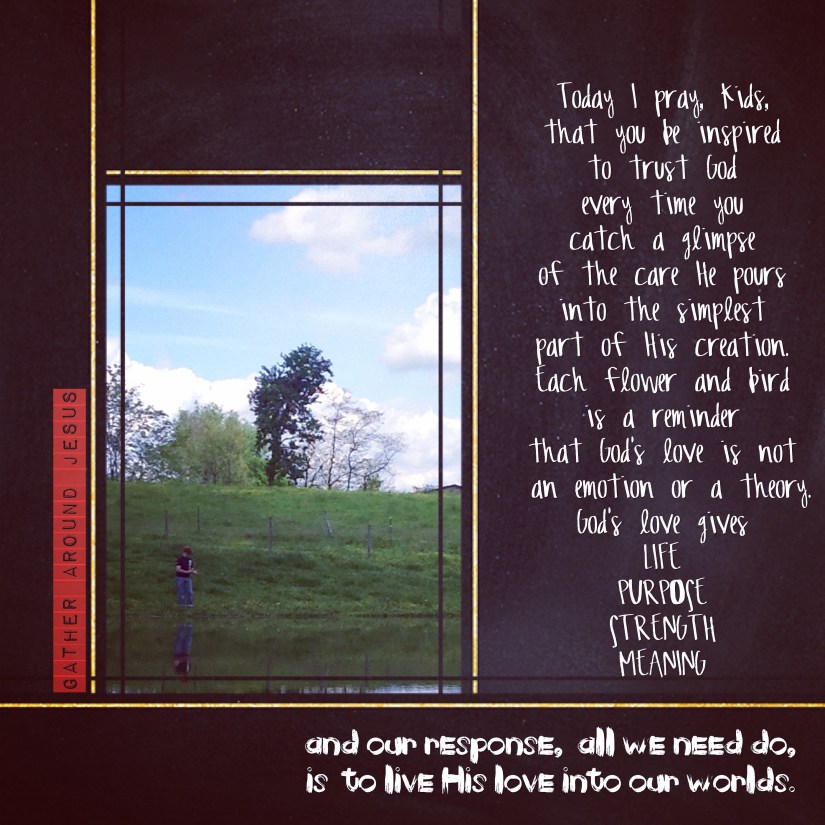 Today I pray, Kids,
that you be inspired
to trust God
every time you
catch a glimpse
of the care He pours
into the simplest
part of His creation.
Each flower and bird
is a reminder
that God's love is not
an emotion or a theory.
God's love gives
LIFE
PURPOSE
STRENGTH
MEANING
and our response, all we need do,
is to live His love into our worlds.
GATHER AROUND JESUS